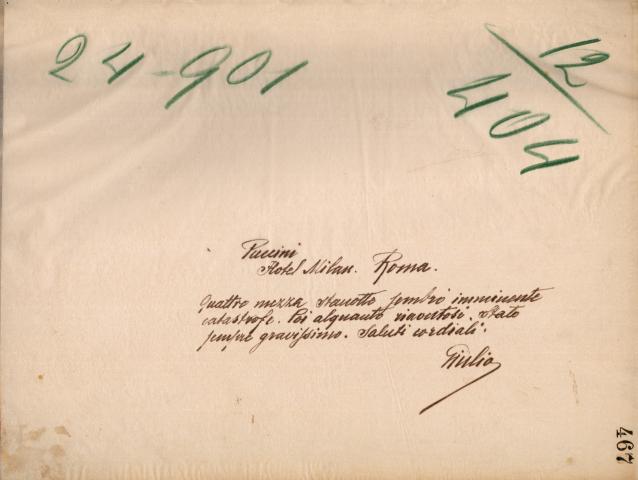 24-901
12/404
Puccini
Hotel Milan. Roma.
Quattro mezza stanotte sembrò imminente
catastrofe. Poi alquanto riavutosi. Stato
sempre gravissimo. Saluti cordiali.
Giulio
467